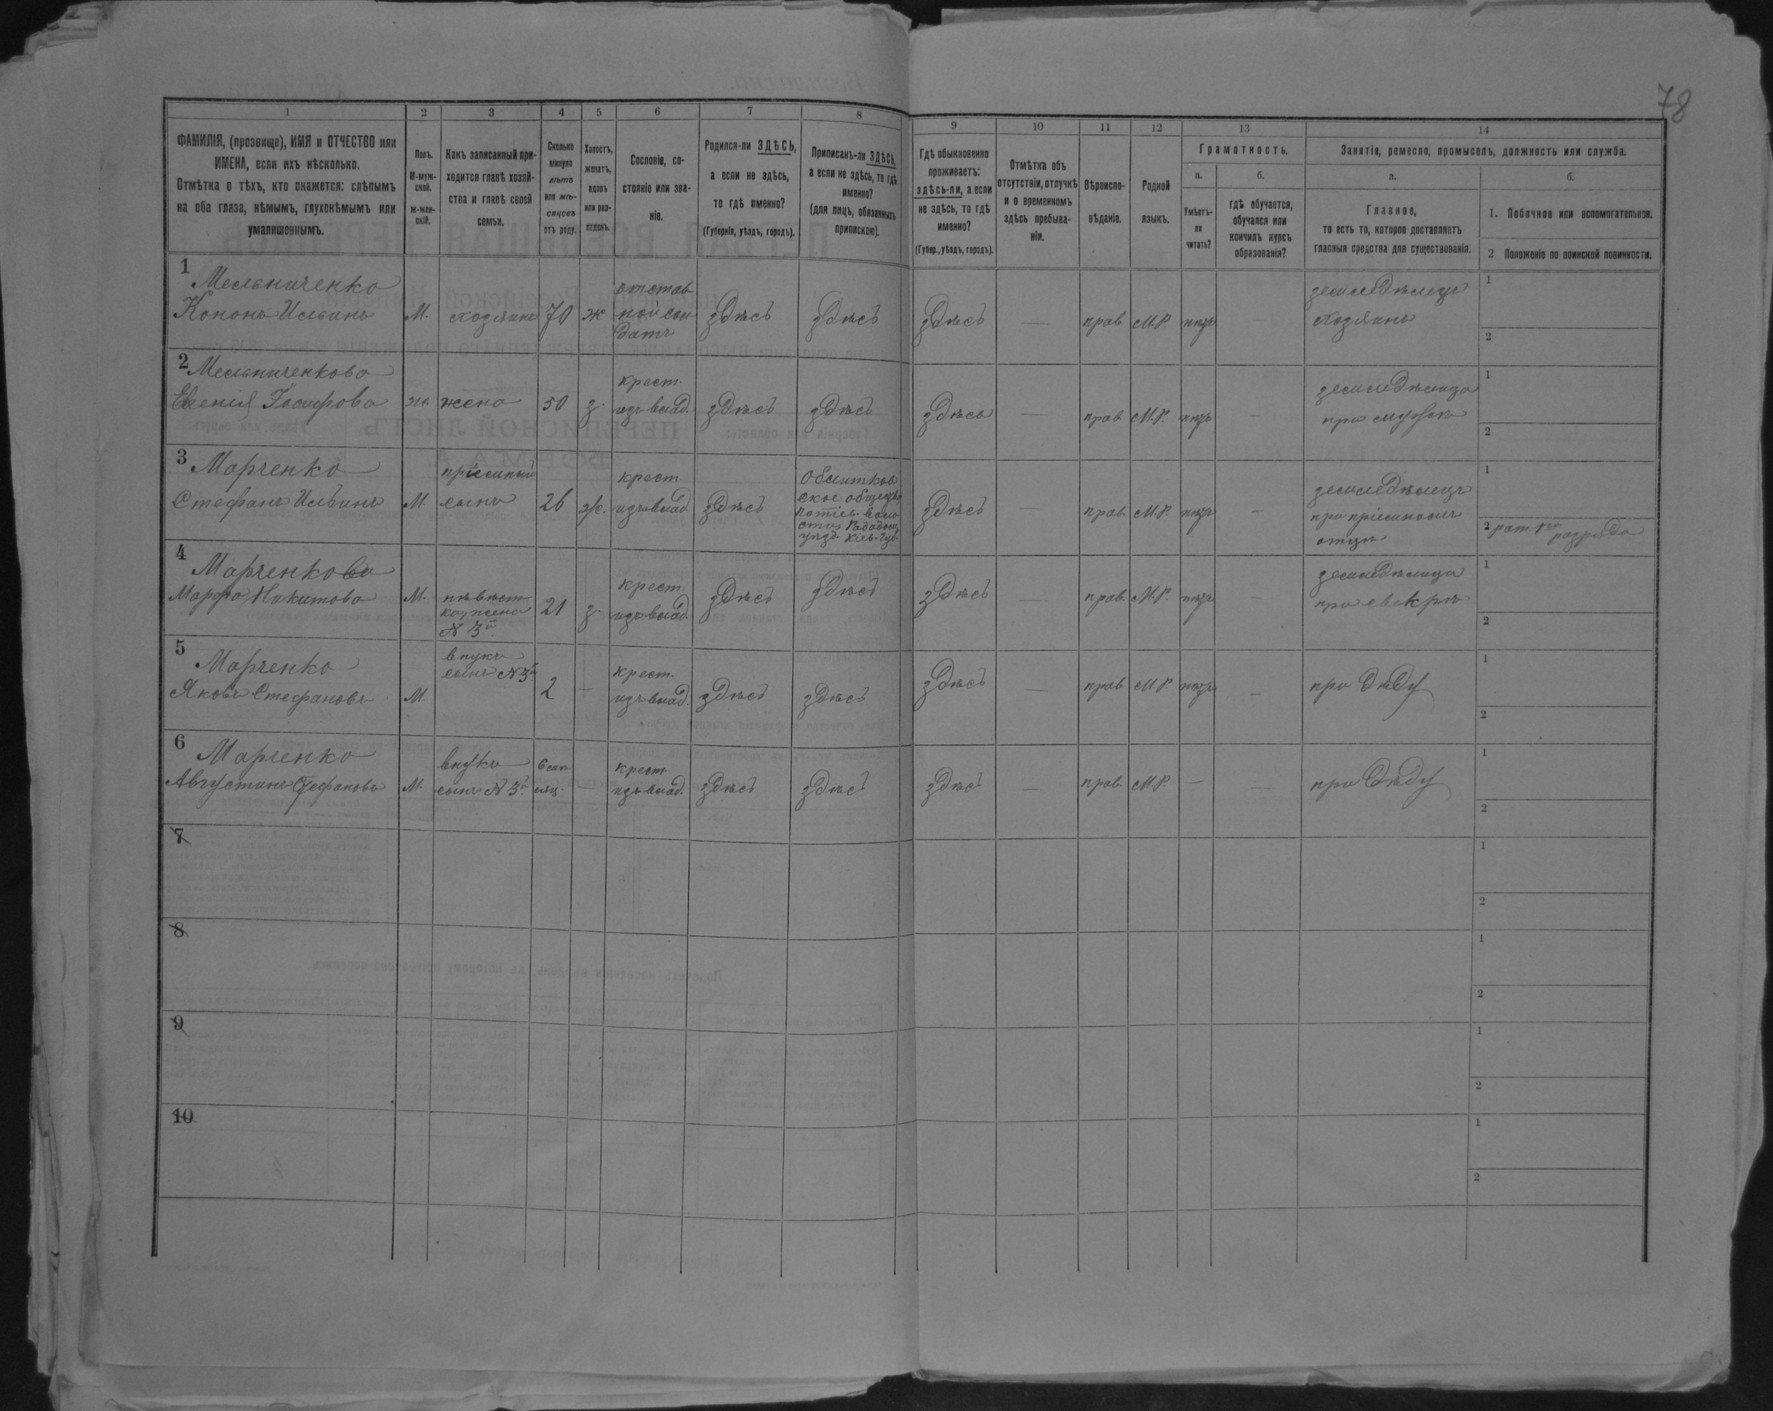 78
1 2 3 4 5 6 7 8 9 10 11 12 13 14
ФАМИЛІЯ, (прозвище), ИМЯ и ОТЧЕСТВО или
ИМЕНА, если ихъ нѣсколько.
Отмѣтка о тѣхъ, кто окажется: слѣпымъ
на оба глаза, нѣмымъ, глухонѣмымъ или
умалишеннымъ.
Полъ.
М-муж-
ской.
Ж-жен-
скій.
Какъ записанный при-
ходится главѣ хозяй-
ства и главѣ своей
семьи.
Сколько
минуло
лѣтъ
или мѣ-
сяцевъ
отъ роду.
Холостъ,
женатъ,
вдовъ
или раз-
веденъ.
Сословіе, со-
стояніе или зва-
ніе.
Родился-ли ЗДѢСЬ,
а если не здѣсь,
то гдѣ именно?
(Губернія, уѣздъ, городъ).
Приписанъ-ли ЗДѢСЬ,
а если не здѣсь, то гдѣ
именно?
(для лицъ, обязанныхъ
припискою).
Гдѣ обыкновенно
проживаетъ:
здѣсь-ли, а если
не здѣсь, то гдѣ
именно?
(Губер., уѣздъ, городъ).
Отмѣтка объ
отсутствіи, отлучкѣ
и о временномъ
здѣсь пребыва-
ніи.
Вѣроиспо-
вѣданіе.
Родной
языкъ.
Грамотность.
а.
Умѣетъ-
ли
читать?
б.
гдѣ обучается,
обучался или
кончилъ курсъ
образованія?
Занятіе, ремесло, промыселъ, должность или служба.
а.
Главное,
то есть то, которое доставляетъ
главныя средства для существованія.
б.
1. Побочное или вспомогательное.
2 Положеніе по воинской повинности.
1
Мельниченко
Кононъ Ильинъ М. хозяинъ 70 ж
отстав
ной сол
датъ
здѣсь здѣсь здѣсь — прав М.Р. нѣтъ —
земледѣлецъ
хозяинъ
1
2
2 Мельниченкова
Евгенія Іосифова жена 50 з.
крест.
изъ влад.
здѣсь здѣсь здѣсь — прав М.Р. нѣтъ —
земледѣлица
при мужѣ
1
2
3 Марченко
Стефанъ Ильинъ М.
пріемный
сынъ 26 ж.
крест
изъ влад
здѣсь
здѣсь — прав М.Р. нѣтъ —
земледѣлецъ
при пріемномъ
отцѣ
1
2 рат. разряда
4
Марченкова
Марфа Никитова М.
невѣст
ка, жена
N 3й
21 з.
крест.
изъ влад.
здѣсь здѣсь здѣсь — прав М.Р. нѣтъ
земледѣлица
при свекрѣ
1
2
5
Марченко
Яковъ Стефановъ М.
внукъ
сынъ N 3й
2 —
крест.
изъ влад.
здѣсь здѣсь здѣсь — прав М.Р. нѣтъ —
при дѣду
1
2
6
Марченко
Августинъ Стефановъ М.
внукъ
сынъ N 3й
6 мѣс
яц. —
крест
изъ влад.
здѣсь здѣсь здѣсь — прав. М.Р. — —
при дѣду
1
2
7
1
2
8
1
2
9
1
2
10
1
2